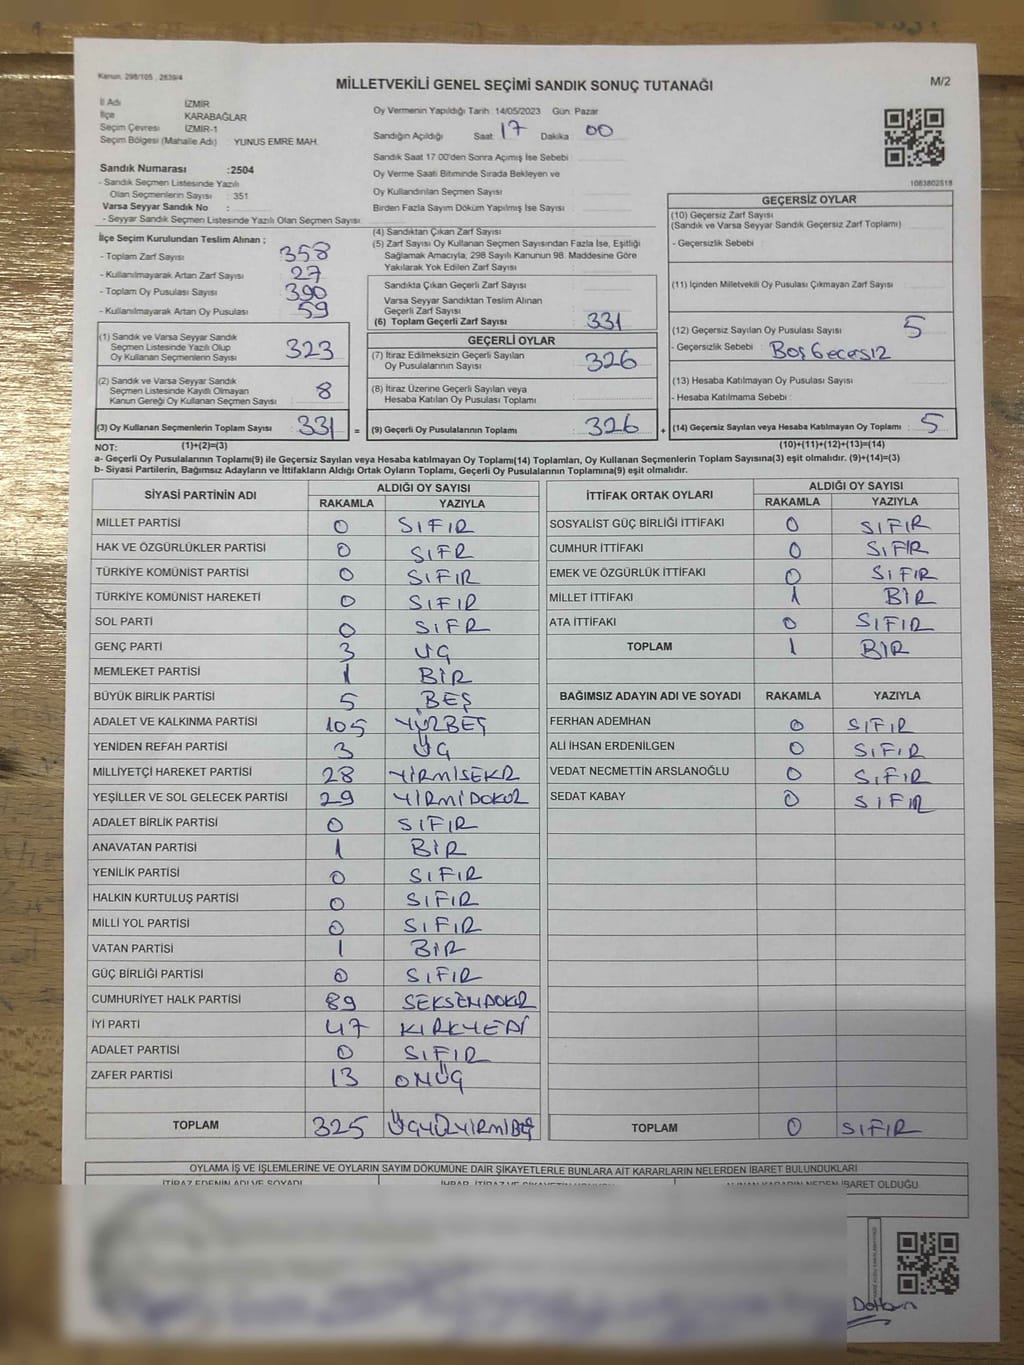 Kanun: 298/105 , 2839/4
MİLLETVEKİLİ GENEL SEÇİMİ SANDIK SONUÇ TUTANAĞI
M/2
İl Adı İZMİR
İlçe KARABAĞLAR
Seçim Çevresi İZMİR-1
Seçim Bölgesi (Mahalle Adı) YUNUS EMRE MAH.
Oy Vermenin Yapıldığı Tarih : 14/05/2023 Gün: Pazar
Sandığın Açıldığı Saat 17 Dakika 00
Sandık Saat 17:00'den Sonra Açılmış İse Sebebi
Oy Verme Saati Bitiminde Sırada Bekleyen ve
Oy Kullandırılan Seçmen Sayısı
Birden Fazla Sayım Döküm Yapılmış İse Sayısı
1083802518
Sandık Numarası :2504
- Sandık Seçmen Listesinde Yazılı
Olan Seçmenlerin Sayısı : 351
Varsa Seyyar Sandık No :
- Seyyar Sandık Seçmen Listesinde Yazılı Olan Seçmen Sayısı
İlçe Seçim Kurulundan Teslim Alınan ;
- Toplam Zarf Sayısı 358
- Kullanılmayarak Artan Zarf Sayısı 27
- Toplam Oy Pusulası Sayısı 390
- Kullanılmayarak Artan Oy Pusulası 59
(1) Sandık ve Varsa Seyyar Sandık
Seçmen Listesinde Yazılı Olup
Oy Kullanan Seçmenlerin Sayısı 323
(2) Sandık ve Varsa Seyyar Sandık
Seçmen Listesinde Kayıtlı Olmayan
Kanun Gereği Oy Kullanan Seçmen Sayısı 8
(3) Oy Kullanan Seçmenlerin Toplam Sayısı 331 =
(4) Sandıktan Çıkan Zarf Sayısı
(5) Zarf Sayısı Oy Kullanan Seçmen Sayısından Fazla İse, Eşitliği
Sağlamak Amacıyla, 298 Sayılı Kanunun 98. Maddesine Göre
Yakılarak Yok Edilen Zarf Sayısı
Sandıkta Çıkan Geçerli Zarf Sayısı
Varsa Seyyar Sandıktan Teslim Alınan
Geçerli Zarf Sayısı
(6) Toplam Geçerli Zarf Sayısı 331
GEÇERLİ OYLAR
(7) İtiraz Edilmeksizin Geçerli Sayılan
Oy Pusulalarının Sayısı 326
(8) İtiraz Üzerine Geçerli Sayılan veya
Hesaba Katılan Oy Pusulası Toplamı
(9) Geçerli Oy Pusulalarının Toplamı 326 +
GEÇERSİZ OYLAR
(10) Geçersiz Zarf Sayısı
(Sandık ve Varsa Seyyar Sandık Geçersiz Zarf Toplamı)
- Geçersizlik Sebebi
(11) İçinden Milletvekili Oy Pusulası Çıkmayan Zarf Sayısı
(12) Geçersiz Sayılan Oy Pusulası Sayısı 5
- Geçersizlik Sebebi : Boş Gecesiz
(13) Hesaba Katılmayan Oy Pusulası Sayısı
- Hesaba Katılmama Sebebi :
(14) Geçersiz Sayılan veya Hesaba Katılmayan Oy Toplamı : 5
NOT: (1)+(2)=(3) (10)+(11)+(12)+(13)=(14)
a- Geçerli Oy Pusulalarının Toplamı(9) ile Geçersiz Sayılan veya Hesaba katılmayan Oy Toplamı(14) Toplamları, Oy Kullanan Seçmenlerin Toplam Sayısına(3) eşit olmalıdır. (9)+(14)=(3)
b- Siyasi Partilerin, Bağımsız Adayların ve İttifakların Aldığı Ortak Oyların Toplamı, Geçerli Oy Pusulalarının Toplamına(9) eşit olmalıdır.
SİYASİ PARTİNİN ADI ALDIĞI OY SAYISI
RAKAMLA YAZIYLA
MİLLET PARTİSİ 0 SIFIR
HAK VE ÖZGÜRLÜKLER PARTİSİ 0 SIFR
TÜRKİYE KOMÜNİST PARTİSİ 0 SIFIR
TÜRKİYE KOMÜNİST HAREKETİ 0 SIFIR
SOL PARTİ 0 SIFR
GENÇ PARTİ 3 ÜÇ
MEMLEKET PARTİSİ 1 BİR
BÜYÜK BİRLİK PARTİSİ 5 BEŞ
ADALET VE KALKINMA PARTİSİ 105 YÜZBEŞ
YENİDEN REFAH PARTİSİ 3 ÜÇ
MİLLİYETÇİ HAREKET PARTİSİ 28 YİRMİSEKZ
YEŞİLLER VE SOL GELECEK PARTİSİ 29 YİRMİDOKUZ
ADALET BİRLİK PARTİSİ 0 SIFIR
ANAVATAN PARTİSİ 1 BİR
YENİLİK PARTİSİ 0 SIFIR
HALKIN KURTULUŞ PARTİSİ 0 SIFIR
MİLLİ YOL PARTİSİ 0 SIFIR
VATAN PARTİSİ 1 BİR
GÜÇ BİRLİĞİ PARTİSİ 0 SIFIR
CUMHURİYET HALK PARTİSİ 89 SEKSENDOKUZ
İYİ PARTİ 47 KIRKYEDİ
ADALET PARTİSİ 0 SIFIR
ZAFER PARTİSİ 13 ONÜÇ
TOPLAM 325 ÜÇYÜZYİRMİBEŞ
İTTİFAK ORTAK OYLARI ALDIĞI OY SAYISI
RAKAMLA YAZIYLA
SOSYALİST GÜÇ BİRLİĞİ İTTİFAKI 0 SIFIR
CUMHUR İTTİFAKI 0 SIFIR
EMEK VE ÖZGÜRLÜK İTTİFAKI 0 SIFIR
MİLLET İTTİFAKI 1 BİR
ATA İTTİFAKI 0 SIFIR
TOPLAM 1 BİR
BAĞIMSIZ ADAYIN ADI VE SOYADI RAKAMLA YAZIYLA
FERHAN ADEMHAN 0 SIFIR
ALİ İHSAN ERDENİLGEN 0 SIFIR
VEDAT NECMETTİN ARSLANOĞLU 0 SIFIR
SEDAT KABAY 0 SIFIR
TOPLAM 0 SIFIR
OYLAMA İŞ VE İŞLEMLERİNE VE OYLARIN SAYIM DÖKÜMÜNE DAİR ŞİKAYETLERLE BUNLARA AİT KARARLARIN NELERDEN İBARET BULUNDUKLARI
İTİRAZ EDENİN ADI VE SOYADI
İBARET OLDUĞU